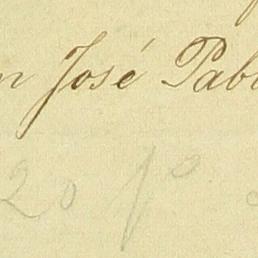 n José Pabl
20 fº